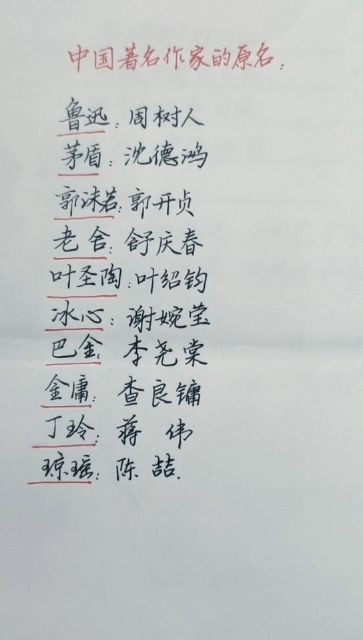 中国著名作家的原名:
鲁迅:周树人
茅盾:沈德鸿
郭沫若:郭开贞
老舍:舒庆春
叶圣陶:叶绍钧
冰心:谢婉莹
巴金:李尧棠
金庸:查良镛
丁玲:蒋伟
琼瑶:陈喆.